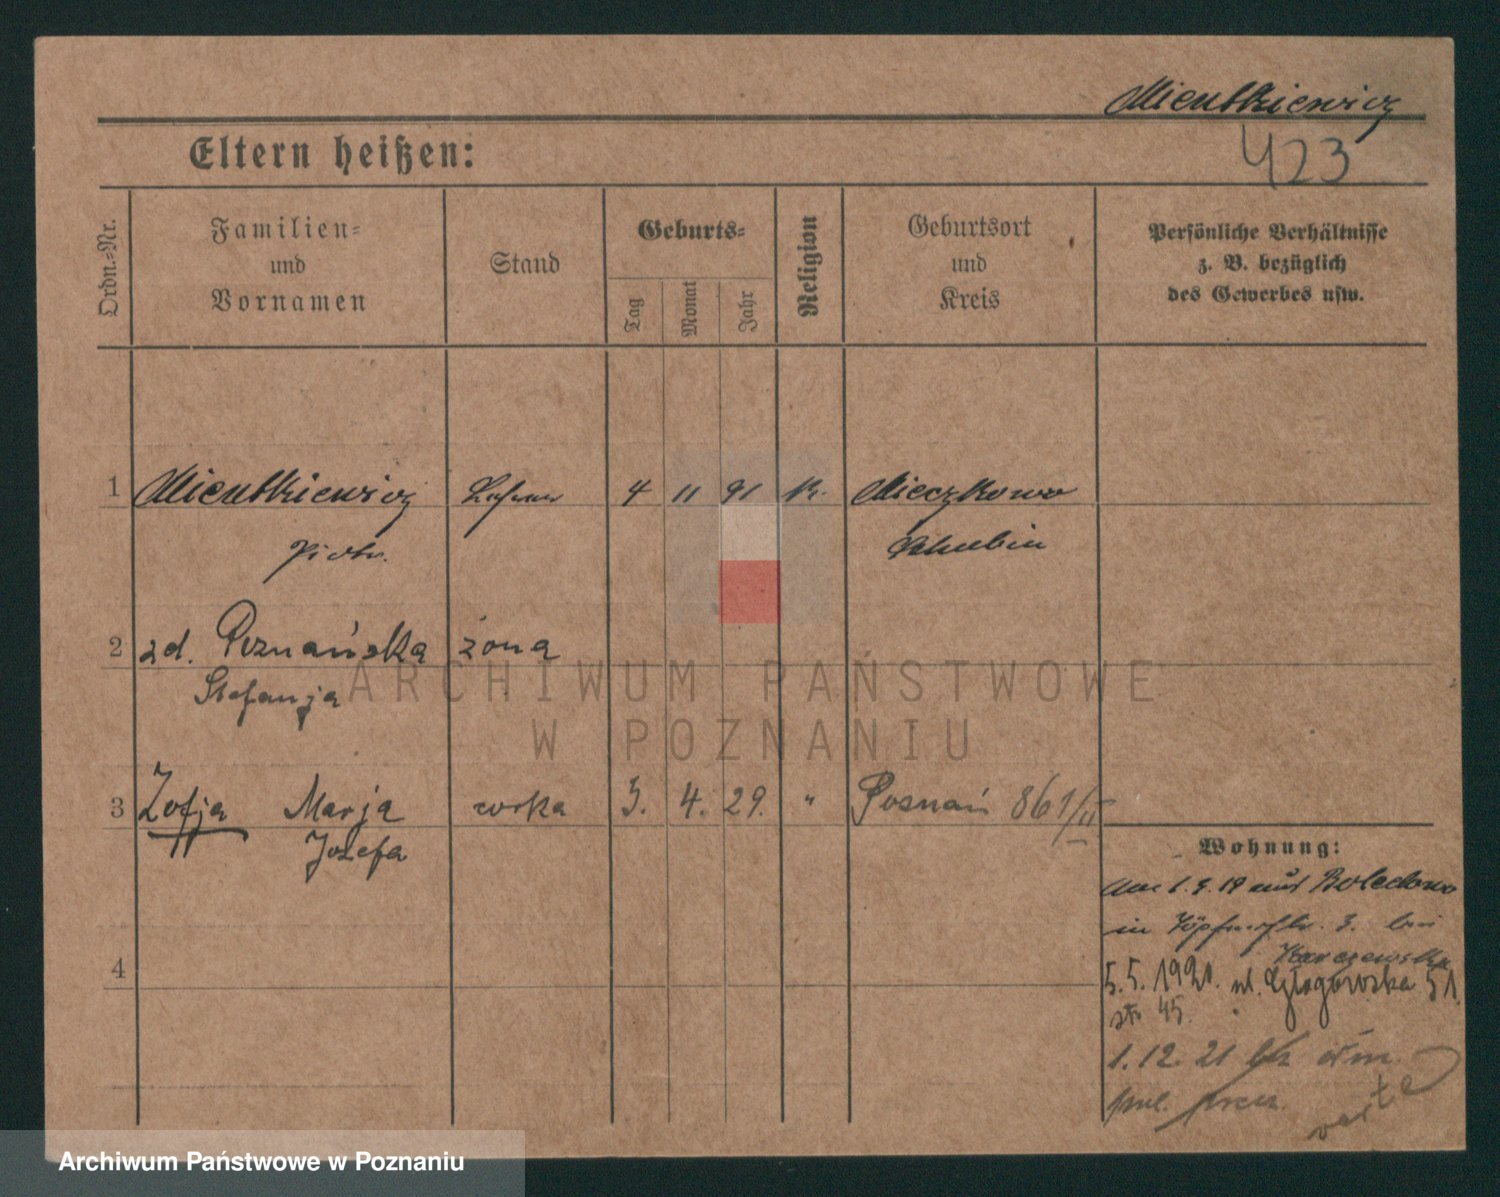 Mientkiewicz
Eltern heißen:
423
Ordn.-Nr.
Familien-
und
Vornamen
Stand
Geburts-
Tag
Monat
Jahr
Religion
Geburtsort
und
Kreis
Persönliche Verhältnisse
z. B. bezüglich
des Gewerbes usw.
1 Mientkiewicz 4 11 91 k. Mieczkowo
Piotr. Schubin
2 zd. Poznańska żona
Stefanja
3 Zofja Marja corka 3. 4. 29. " Poznań 861/II
Józefa
Wohnung:
am 1. 9. 19 aus
in 3. bei
5.5. 1920. ul. Głogowska 51
45.
1. 12. 21
4
verte
ARCHIWUM PAŃSTWOWE
W POZNANIU
Archiwum Państwowe w Poznaniu